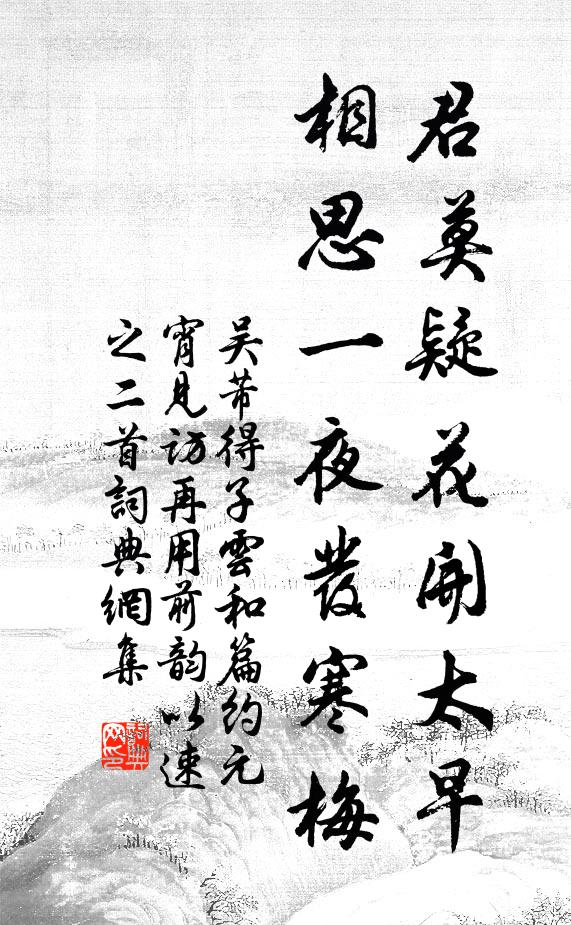 君莫疑花開太早
相思一夜發寒梅
吴芾得子雲和篇約元
宵見訪再用前韵以速
之二首詞典網集